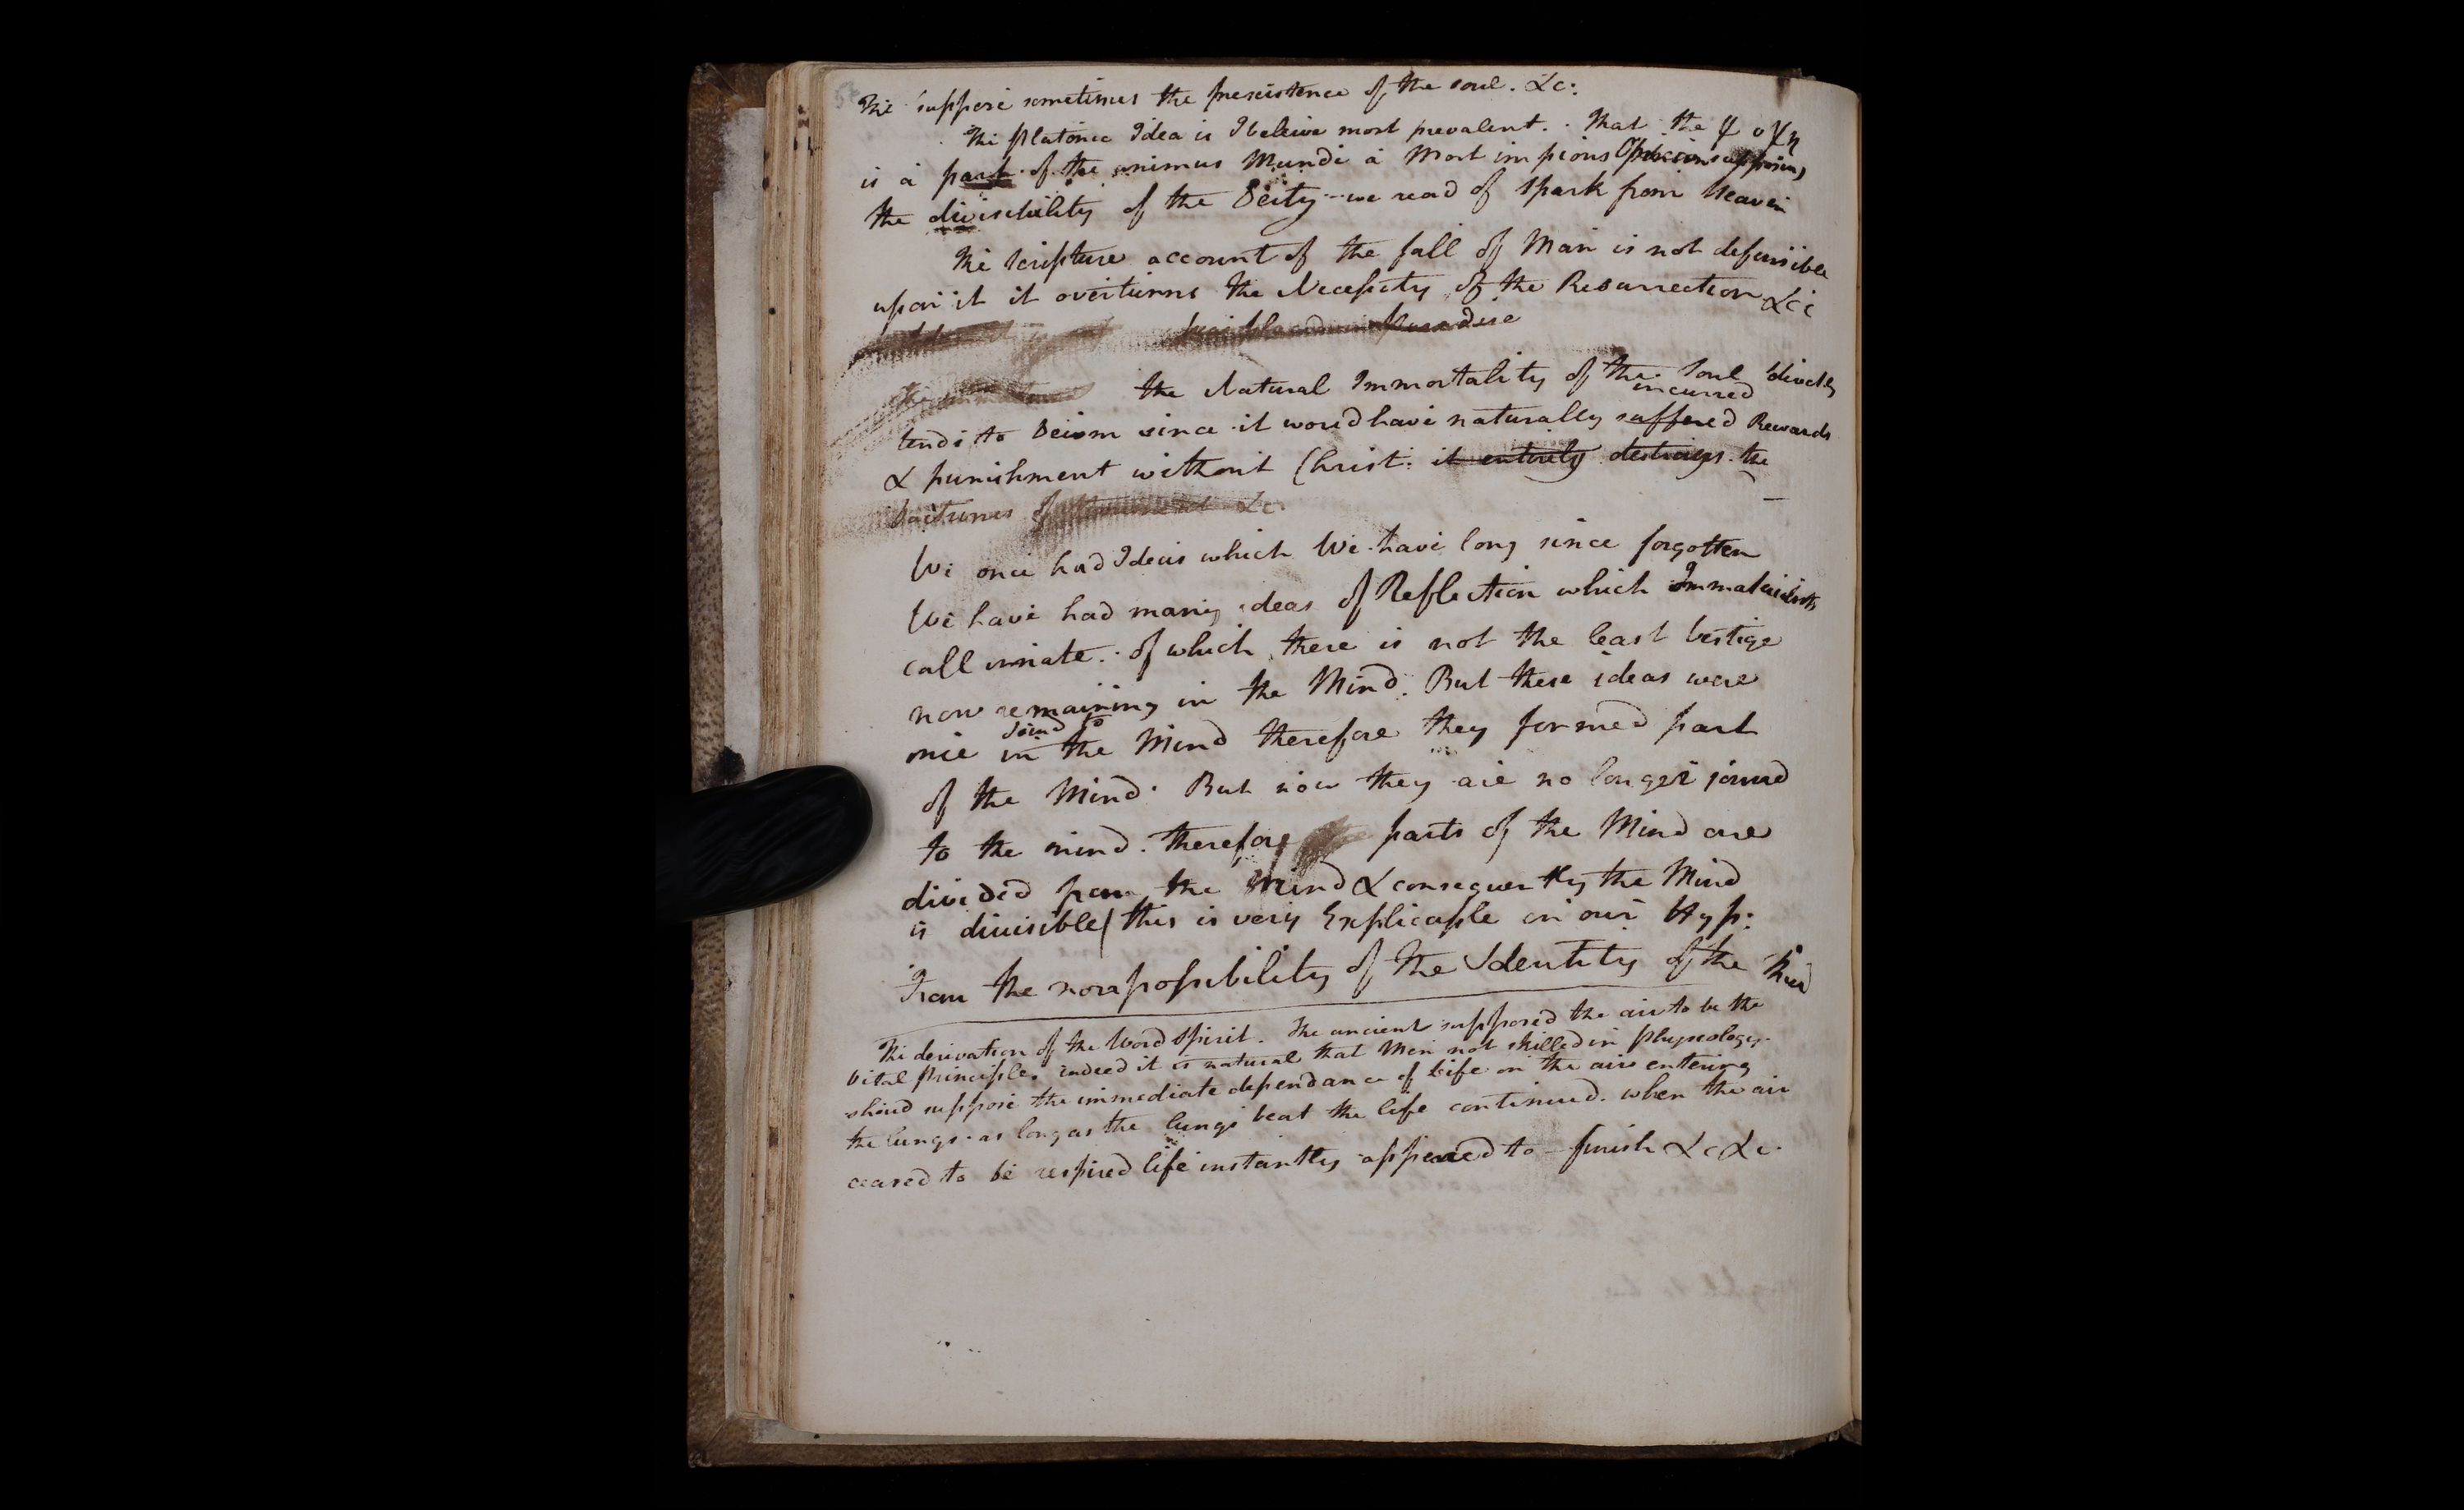 The suppose sometimes the prexistence of the soul. &c:
The Platonic Idea is I beleive most prevalent. That the ψοχη
is a part of the animus Mundi a Most impious Opinion supposing
the divisibility of the Deity we read of spark from Heaven
The scripture account of the fall of Man is not defensible
upon it it overturns the Necessity of the Resurrection &c
Paradise
the Natural Immortality of the Soul directly
incurred
tends to Deism since it would have naturally suffered Rewards
& punishment without Christ: it entirely destroys the
Doctrines of &c
We once had Ideas which We have long since forgotten
We have had many ideas of Reflection which Immaterialists
call innate. of which there is not the least Vestige
now remaining in the Mind. But these ideas were
Joind to
once in the Mind therefore they formed part
of the Mind. But now they are no longer joined
to the mind. therefore parts of the Mind are
divided from the Mind & consequently the Mind
is divisible/ this is very Explicable on our Hyp:
From the nonpossibility of the Identity of the
The derivation of the Word Spirit. The ancient supposed the air to be the
Vital Principle. indeed it is natural that Men not skilled in physeology
shoud suppose the immediate dependance of Life on the air entering
the lungs. as long as the lungs beat the life continued. when the air
ceased to be respired life instantly appeared to finish &c &c.